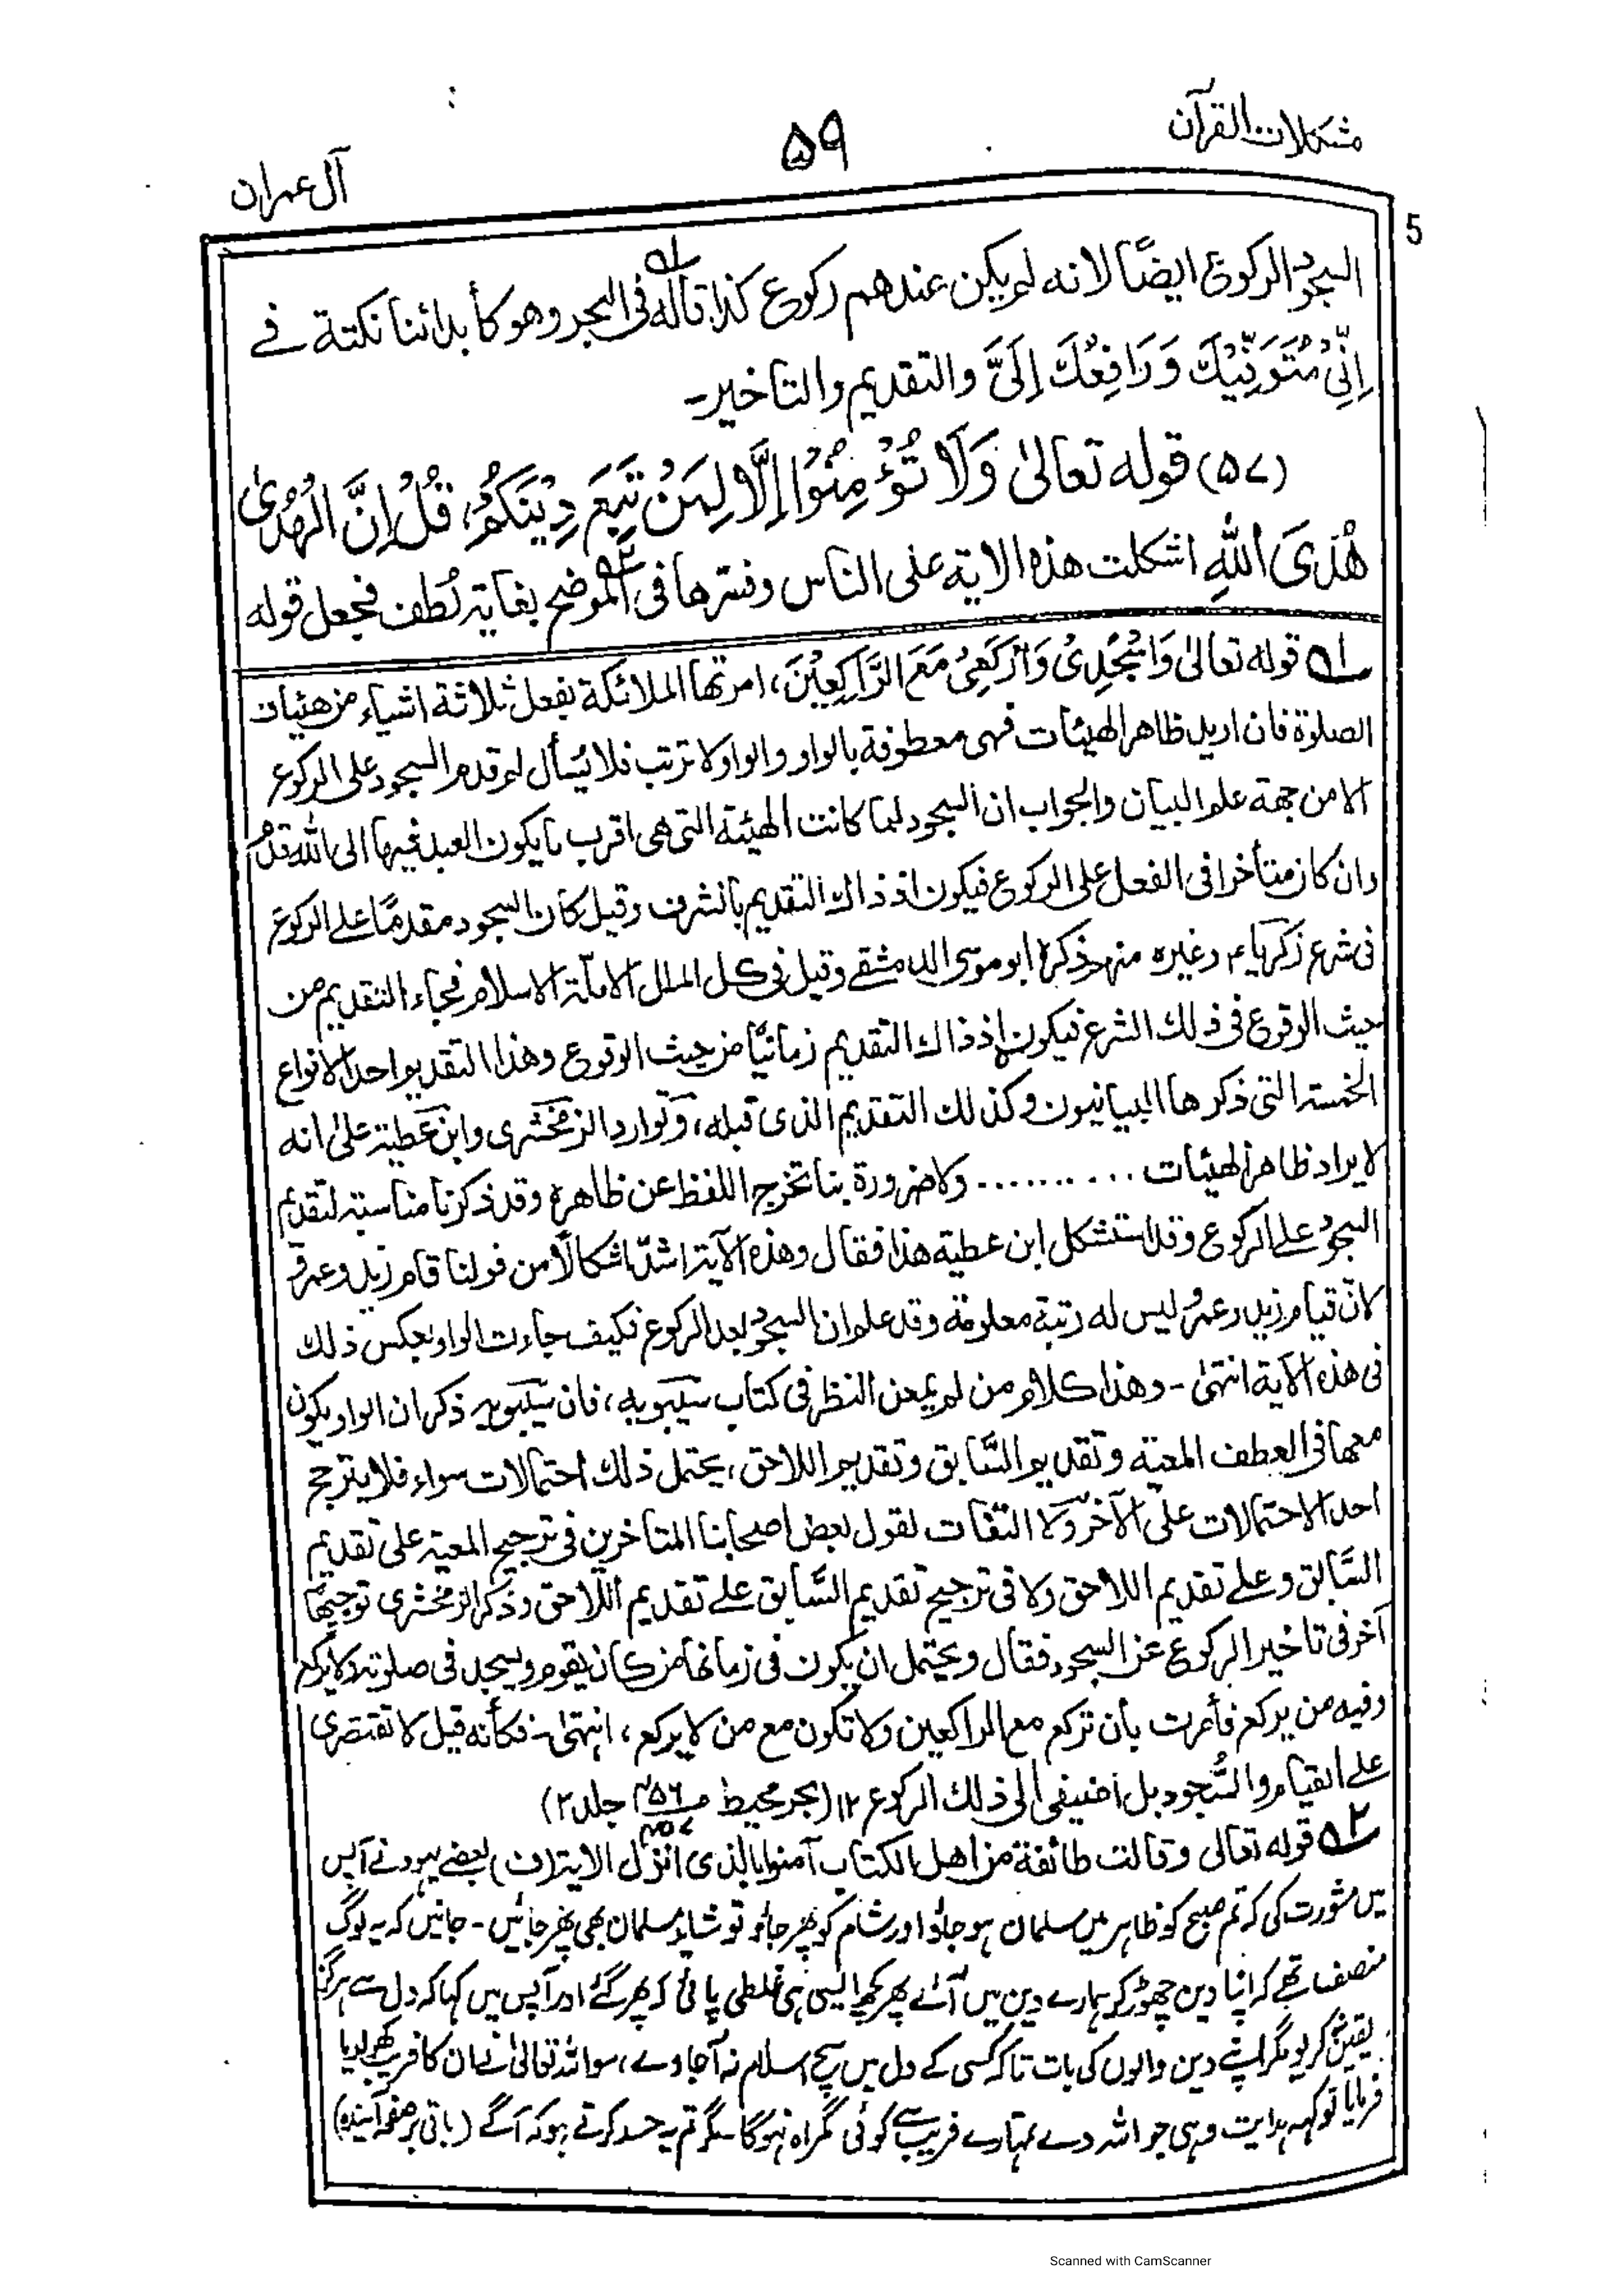 مشكلات القرآن
۵۹
آل عمران
5
السجود الركوع ايضًا لانه لم يكن عندهم ركوع كذا قاله فى البحر وهو كأبدائنا نكتة فے
اِنِّىْ مُتَوَفِّيْكَ وَرَافِعُكَ اِلَىَّ والتقديم والتاخير۔
(۵۷) قوله تعالىٰ وَلَا تُؤْمِنُوْا اِلَّا لِمَنْ تَبِعَ دِيْنَكُمْ، قُلْ اِنَّ الْهُدىٰ
هُدَى اللّٰهِ اشكلت هذه الاية على الناس وفسرها فى الموضح بغاية لُطف فجعل قوله
لـ۱ـه قوله تعالىٰ وَاسْجُدِىْ وَارْكَعِىْ مَعَ الرَّاكِعِيْنَ، امرتها الملائكة بفعل ثلاثة اشياء من هيئات
الصلوة فان اريد ظاهر الهيئات فهى معطوفة بالواو والواو لا ترتب فلا يسأل لم قدم السجود على الركوع
الا من جهة علم البيان والجواب ان السجود لما كانت الهيئة التى هى اقرب ما يكون العبد فيها الى الله قدم
وان كان متأخرا فى الفعل على الركوع فيكون اذ ذاك التقديم بالشرف وقيل كان السجود مقدمًا على الركوع
فى شرع زكرياء وغيره منهم ذكره ابو موسى الدمشقے وقيل فى كل الملل الا ملّة الاسلام فجاء التقديم من
حيث الوقوع فى ذلك الشرع فيكون اذ ذاك التقديم زمانيًا من حيث الوقوع وهذا التقديم احد الانواع
الخمسة التى ذكرها البيانيون وكذلك التقديم الذى قبله، وتوارد الزمخشرى وابن عطية علىٰ انه
لا يراد ظاهر الهيئات .......... ولا ضرورة بنا تخرج اللفظ عن ظاهره وقد ذكرنا مناسبة لتقديم
السجود على الركوع وقد استشكل ابن عطية هذا فقال وهذه الآية اشدّ اشكالًا من قولنا قام زيد وعمرو
لانّ قيام زيد وعمرو ليس له رتبة معلومة وقد علم ان السجود بعد الركوع فكيف جاءت الواو بعكس ذلك
فى هذه الآية انتهىٰ - وهذا كلام من لم يمعن النظر فى كتاب سيبويه، فان سيبويه ذكر ان الواو يكون
معها فى العطف المعية وتقديم السّابق وتقديم اللاحق، يحتمل ذلك احتمالات سواء فلا يترجح
احد الاحتمالات على الآخر ولا التفات لقول بعض اصحابنا المتاخرين فى ترجيح المعية على تقديم
السّابق وعلے تقديم اللاحق ولا فى ترجيح تقديم السّابق علے تقديم اللّاحق وذكر الزمخشرى توجيهًا
آخر فى تاخير الركوع عن السجود فقال ويحتمل ان يكون فى زمانها من كان يقوم ويسجد فى صلوته ولا يركع
وفيه من يركع فأمرت بأن تركع مع الراكعين ولا تكون مع من لا يركع، انتهىٰ۔ فكأنه قيل لا تقتصرى
علے القيام والسُّجود بل اضيفى الى ذلك الركوع ۱۲ (بحر محيط ص۴۵۶ ۴۵۷ جلد۲)
لـ۲ـه قوله تعالى وقالت طائفة من اهل الكتاب آمنوا بالذى انزل الاية (ف) بعضے يہود نے آپس
میں مشورت کی کہ تم صبح کو ظاہر میں مسلمان ہو جاؤ اور شام کو پھر جاؤ تو شاید مسلمان بھی پھر جائیں - جانیں کہ یہ لوگ
منصف تھے کہ اپنا دین چھوڑ کر ہمارے دین میں آئے پھر کچھ ایسی ہی غلطی پائی کہ پھر گئے اور آپس میں کہا کہ دل سے ہرگز
یقین نہ کریو مگر اپنے دین والوں کی بات تاکہ کسی کے دل میں سچ اسلام نہ آ جاوے، سو اللہ تعالیٰ نے ان کا فریب کھول دیا
فرمایا تو کہہ ہدایت وہی جو اللہ دے تمہارے فریب سے کوئی گمراہ نہ ہوگا۔ مگر تم یہ حسد کرتے ہو کہ آگے (باقی بر صفحہ آیندہ)
Scanned with CamScanner